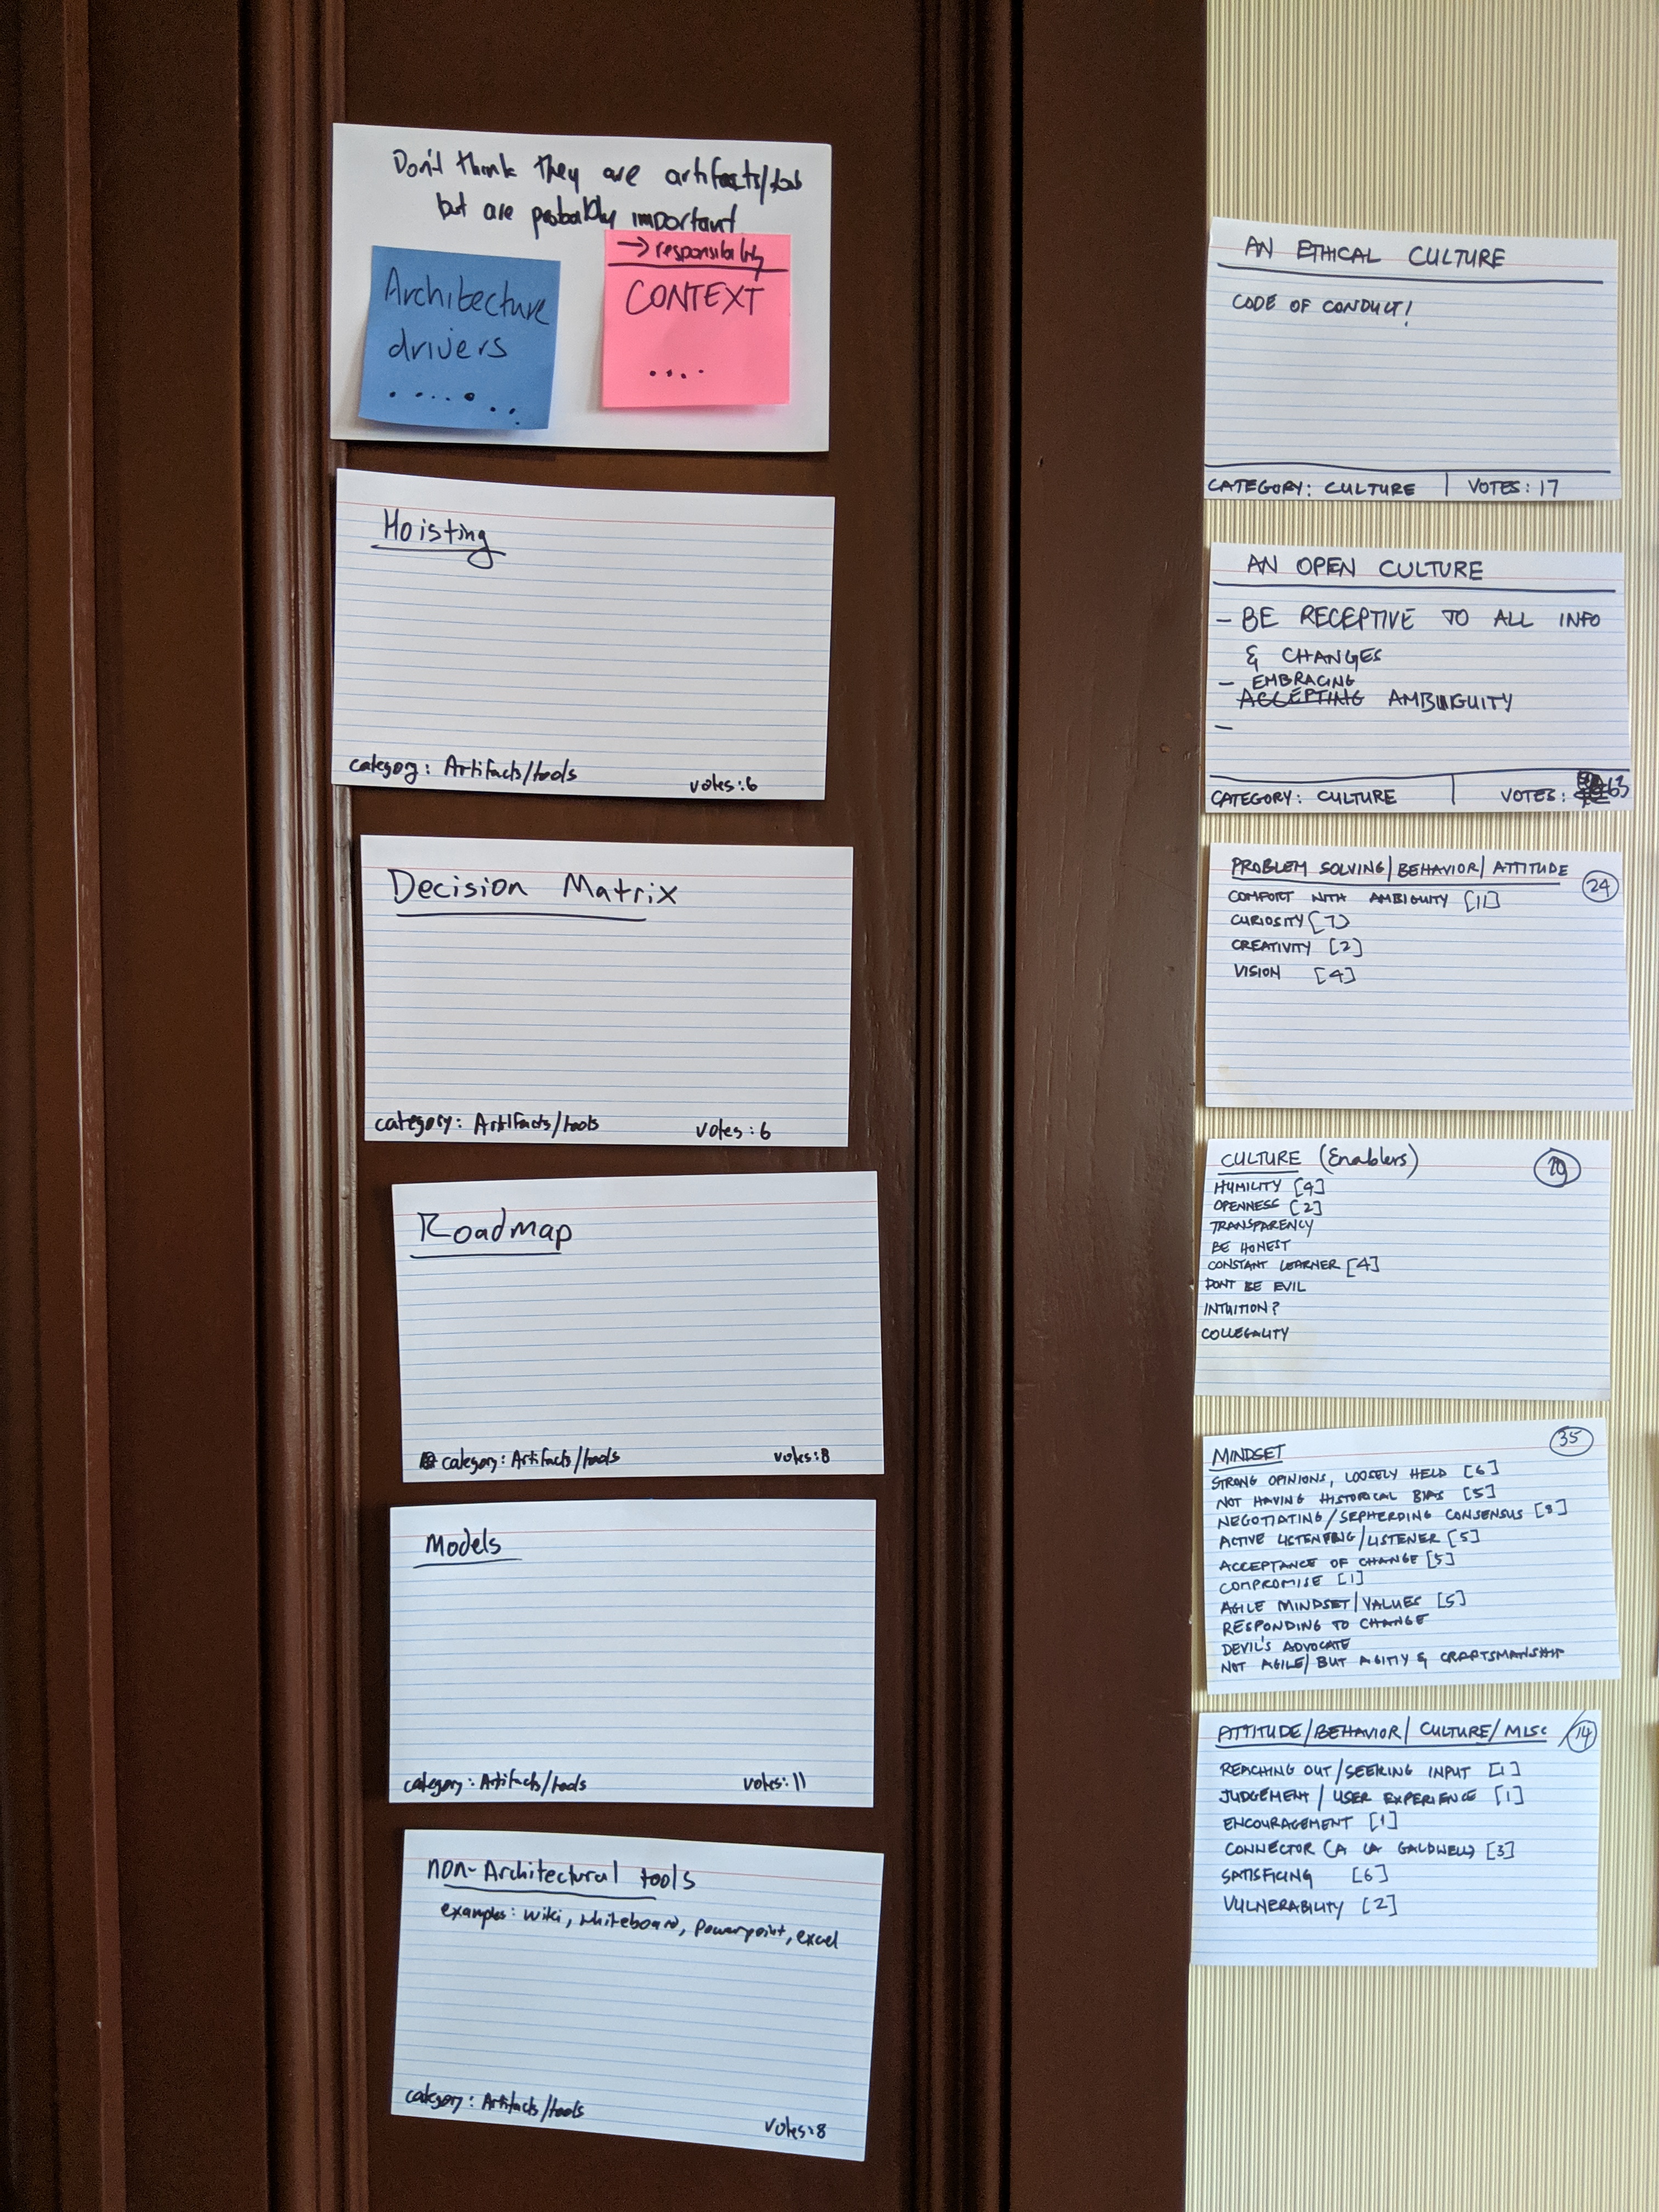 Don't think they are artifacts/tools
but are probably important
Architecture
drivers
→ responsibility
CONTEXT
Hoisting
category: Artifacts/tools votes:6
Decision Matrix
category: Artifacts/tools votes:6
Roadmap
category: Artifacts/tools votes:8
Models
category: Artifacts/tools votes:11
non-Architectural tools
examples: wiki, whiteboard, Powerpoint, excel
category: Artifacts/tools votes:8
AN ETHICAL CULTURE
CODE OF CONDUCT!
CATEGORY: CULTURE | VOTES: 17
AN OPEN CULTURE
- BE RECEPTIVE TO ALL INFO
& CHANGES
- EMBRACING
ACCEPTING AMBIGUITY
-
CATEGORY: CULTURE | VOTES: 63
PROBLEM SOLVING/BEHAVIOR/ATTITUDE 24
COMFORT WITH AMBIGUITY [11]
CURIOSITY [7]
CREATIVITY [2]
VISION [4]
CULTURE (Enablers)
HUMILITY [4]
OPENNESS [2]
TRANSPARENCY
BE HONEST
CONSTANT LEARNER [4]
DONT BE EVIL
INTUITION?
COLLEGALITY
MINDSET 35
STRONG OPINIONS, LOOSELY HELD [6]
NOT HAVING HISTORICAL BIAS [5]
NEGOTIATING/SEPHERDING CONSENSUS [8]
ACTIVE LISTENING/LISTENER [5]
ACCEPTANCE OF CHANGE [5]
COMPROMISE [1]
AGILE MINDSET/VALUES [5]
RESPONDING TO CHANGE
DEVIL'S ADVOCATE
NOT AGILE/BUT AGITIY & CRAFTSMANSHIP
ATTITUDE/BEHAVIOR/CULTURE/MISC 14
REACHING OUT/SEEKING INPUT [1]
JUDGEMENT/USER EXPERIENCE [1]
ENCOURAGEMENT [1]
CONNECTOR (A LA GALDWELL) [3]
SATISFICING [6]
VULNERABILITY [2]